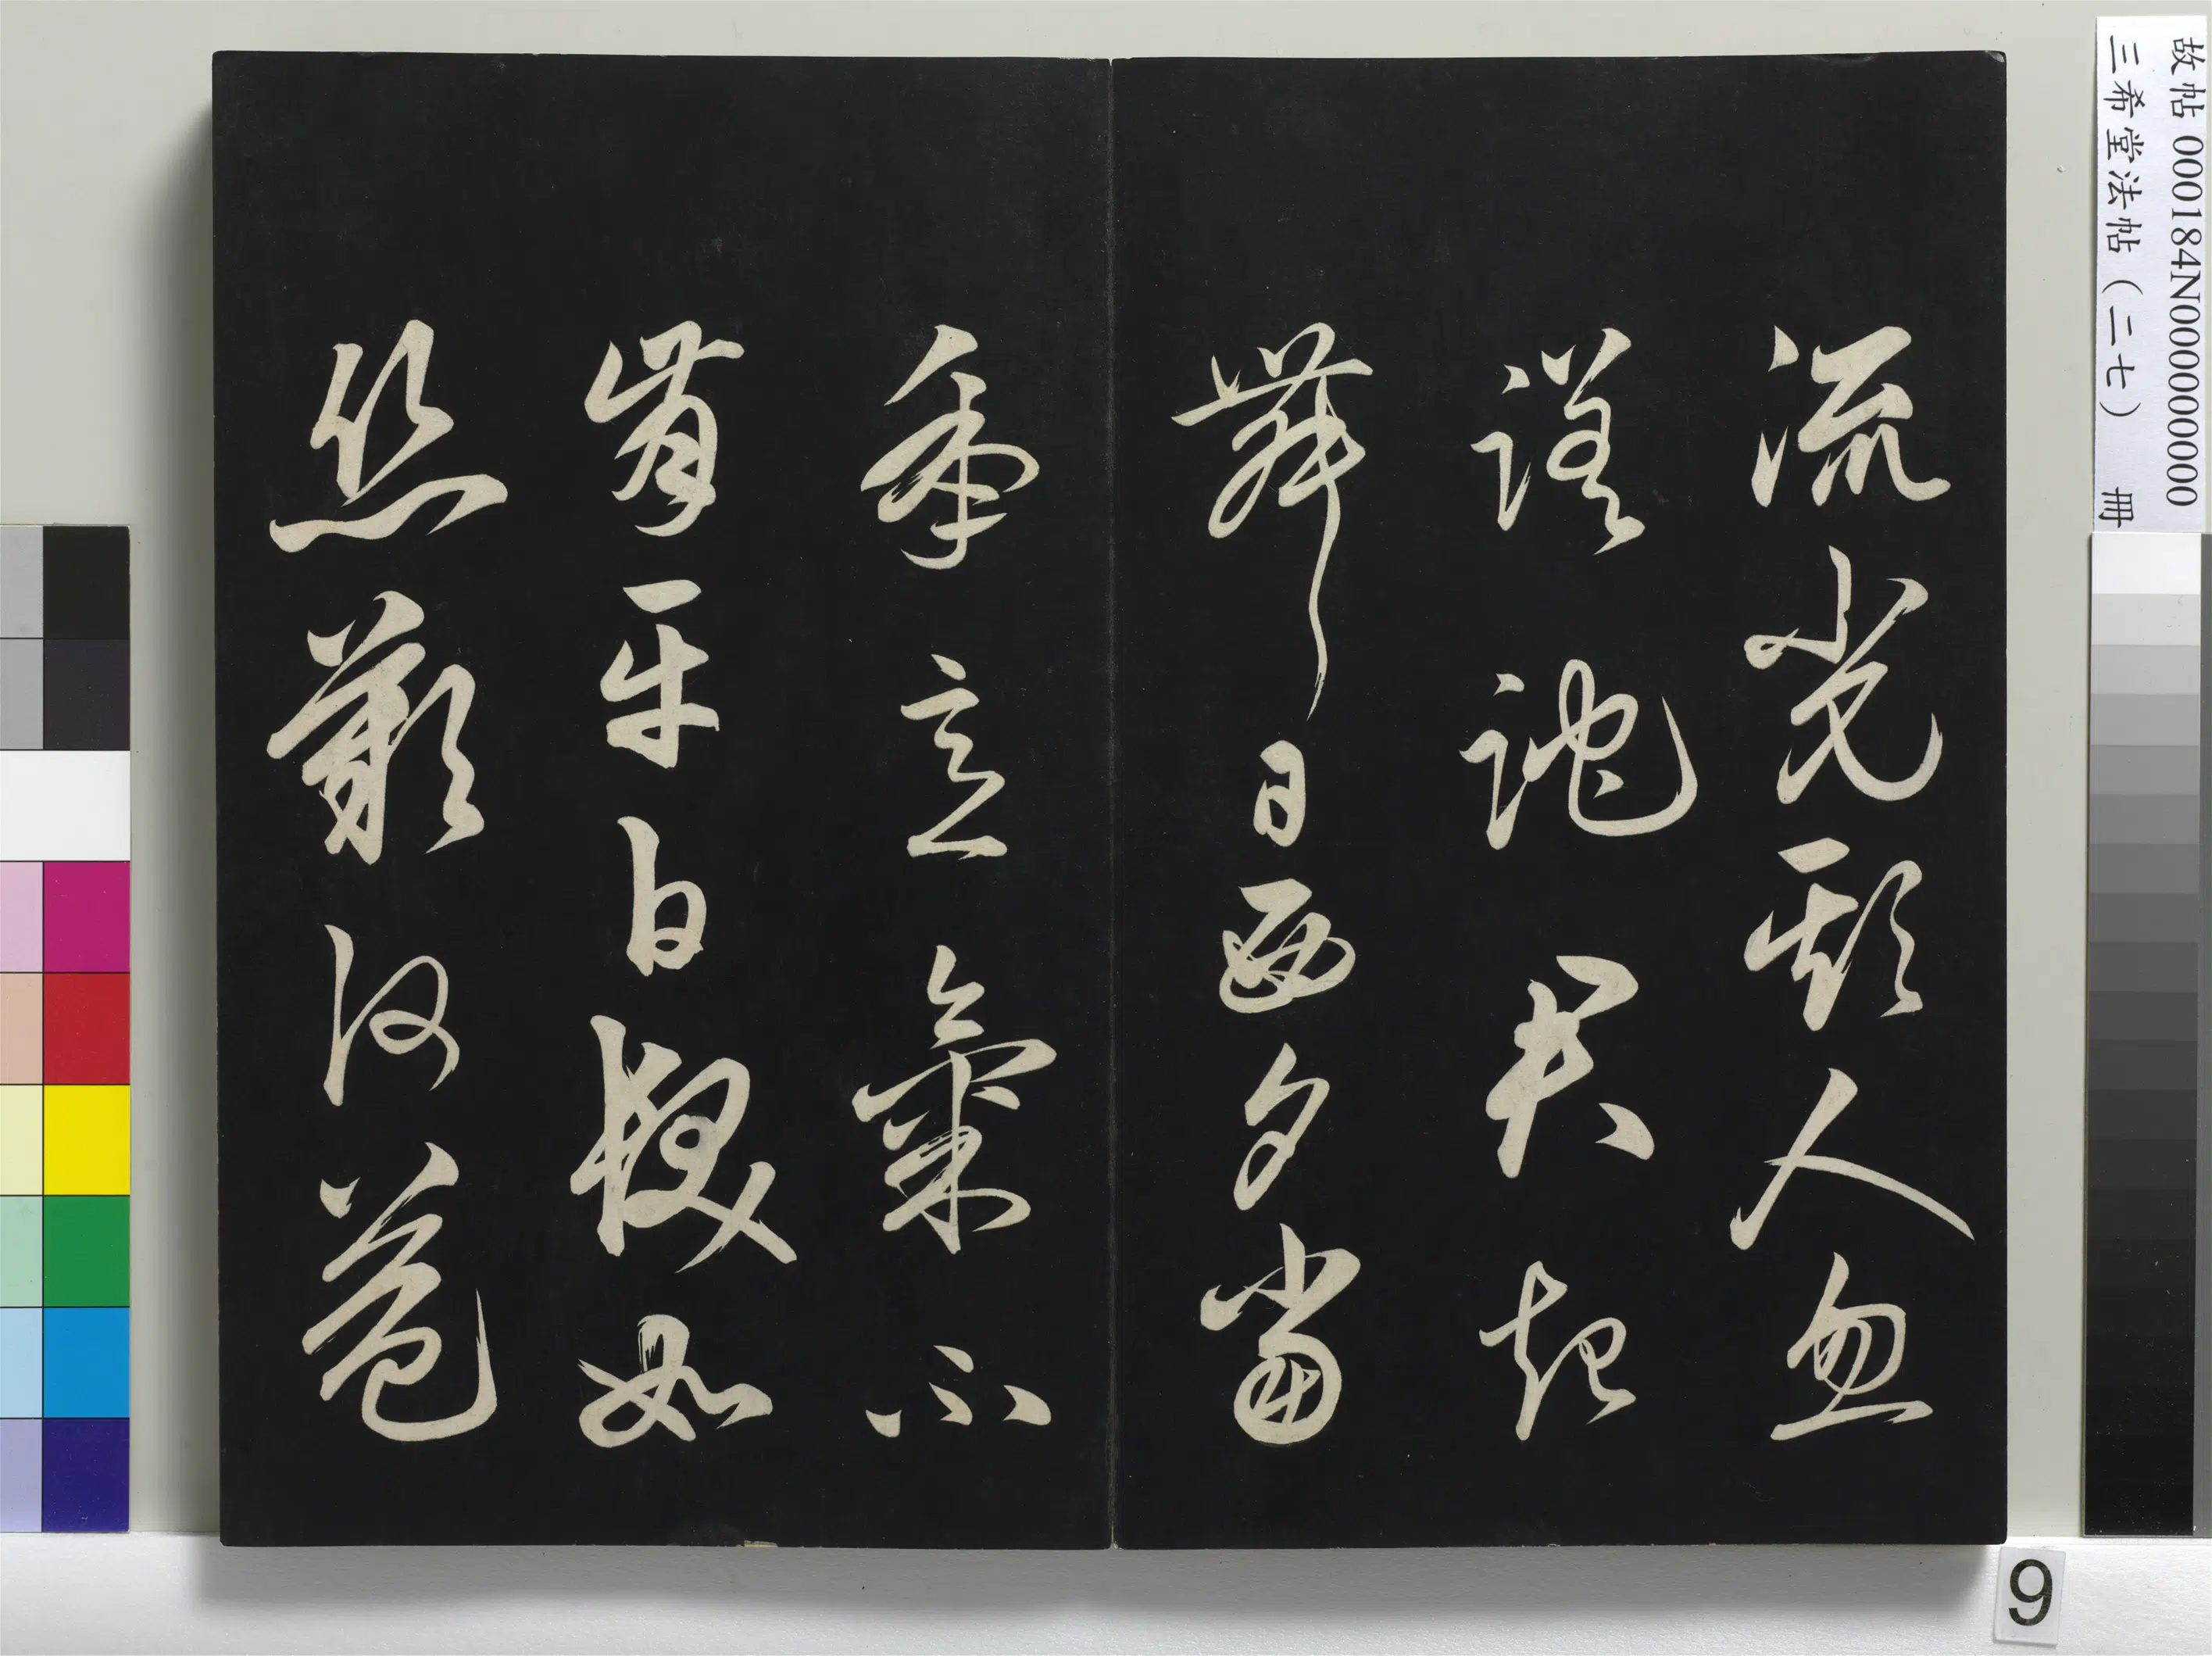 流光欺人忽
蹉跎君起
舞日西夕當
年意氣不
肯平白髮如
絲歎何益
故帖 000184N000000000
三希堂法帖(二七) 冊
9